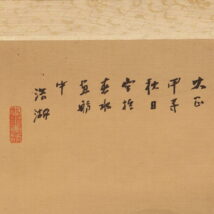 大正
甲子
秋日
写於
春水
画舫
中
浩湖